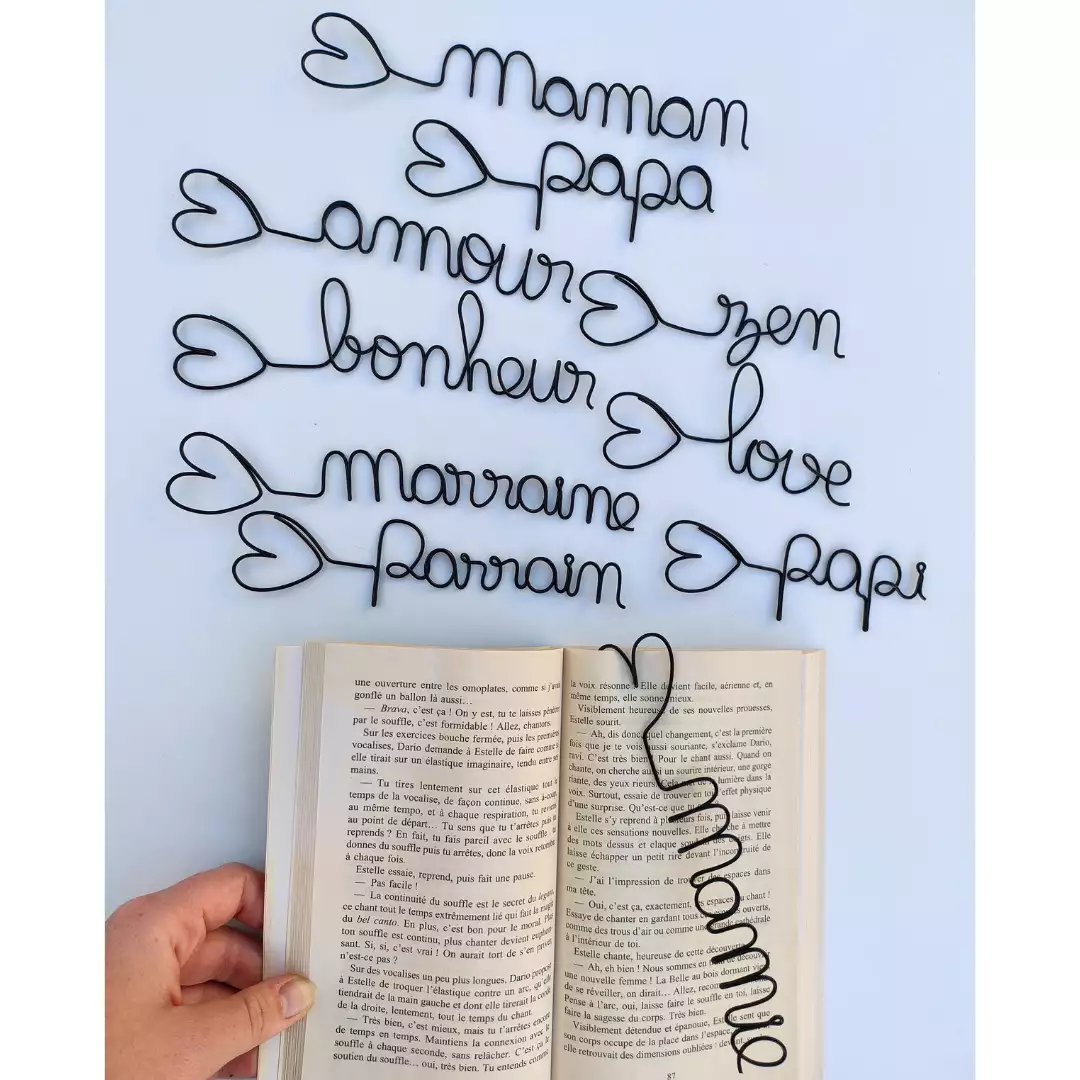 maman
papa
amour
zen
bonheur
love
marraine
parrain
papi
une ouverture entre les omoplates, comme si
gonflé un ballon là aussi…
— Brava, c'est ça ! On y est, tu te laisses
par le souffle, c'est formidable ! Allez, chantons.
Sur les exercices bouche fermée, puis les premières
vocalises, Dario demande à Estelle de faire comme si
elle tirait sur un élastique imaginaire, tendu entre ses
mains.
— Tu tires lentement sur cet élastique tout le
temps de la vocalise, de façon continue, sans à-coup,
au même temps, et à chaque respiration, tu reviens
au point de départ… Tu sens que tu t'arrêtes puis tu
reprends ? En fait, tu fais pareil avec le souffle : tu
donnes du souffle puis tu arrêtes, donc la voix retombe
à chaque fois.
Estelle essaie, reprend, puis fait une pause.
— Pas facile !
— La continuité du souffle est le secret du legato,
ce chant tout le temps extrêmement lié qui fait la magie
du bel canto. En plus, c'est bon pour le moral. Plus
ton souffle est continu, plus chanter devient
sant. Si, si, c'est vrai ! On aurait tort de s'en priver,
n'est-ce pas ?
Sur des vocalises un peu plus longues, Dario propose
à Estelle de troquer l'élastique contre un arc, qu'elle
tiendrait de la main gauche et dont elle tirerait la corde
de la droite, lentement, tout le temps du chant.
— Très bien, c'est mieux, mais tu t'arrêtes encore
de temps en temps. Maintiens la connexion avec le
souffle à chaque seconde, sans relâcher. C'est ça,
soutien du souffle… oui, très bien. Tu entends comme
la voix résonne ? Elle devient facile, aérienne et, en
même temps, elle sonne mieux.
Visiblement heureuse de ses nouvelles prouesses,
Estelle sourit.
— Ah, dis donc, quel changement, c'est la première
fois que je te vois aussi souriante, s'exclame Dario,
ravi. C'est très bien. Pour le chant aussi. Quand on
chante, on cherche aussi un sourire intérieur, une gorge
riante, des yeux rieurs. Cela lumière dans la
voix. Surtout, essaie de trouver en toi effet physique
d'une surprise. Qu'est-ce que
Estelle s'y reprend à plusieurs fois, puis laisse venir
à elle ces sensations nouvelles. Elle cherche à mettre
des mots dessus et claque doigts. Elle
laisse échapper un petit rire devant l'incongruité de
ce geste.
— J'ai l'impression de trouver des espaces dans
ma tête.
— Oui, c'est ça, exactement, des espaces du chant !
Essaye de chanter en gardant tous espaces ouverts,
comme des trous d'air ou comme une grande cathédrale
à l'intérieur de toi.
Estelle chante, heureuse de cette découverte.
— Ah, eh bien ! Nous sommes en
une nouvelle femme ! La Belle au bois dormant vient
de se réveiller, on dirait… Allez,
Pense à l'arc, oui, laisse faire le souffle en toi, laisse
faire la sagesse du corps. Très bien.
Visiblement détendue et épanouie, Estelle sent que
son corps occupe de la place dans l'espace,
elle retrouvait des dimensions oubliées :
87
mamie